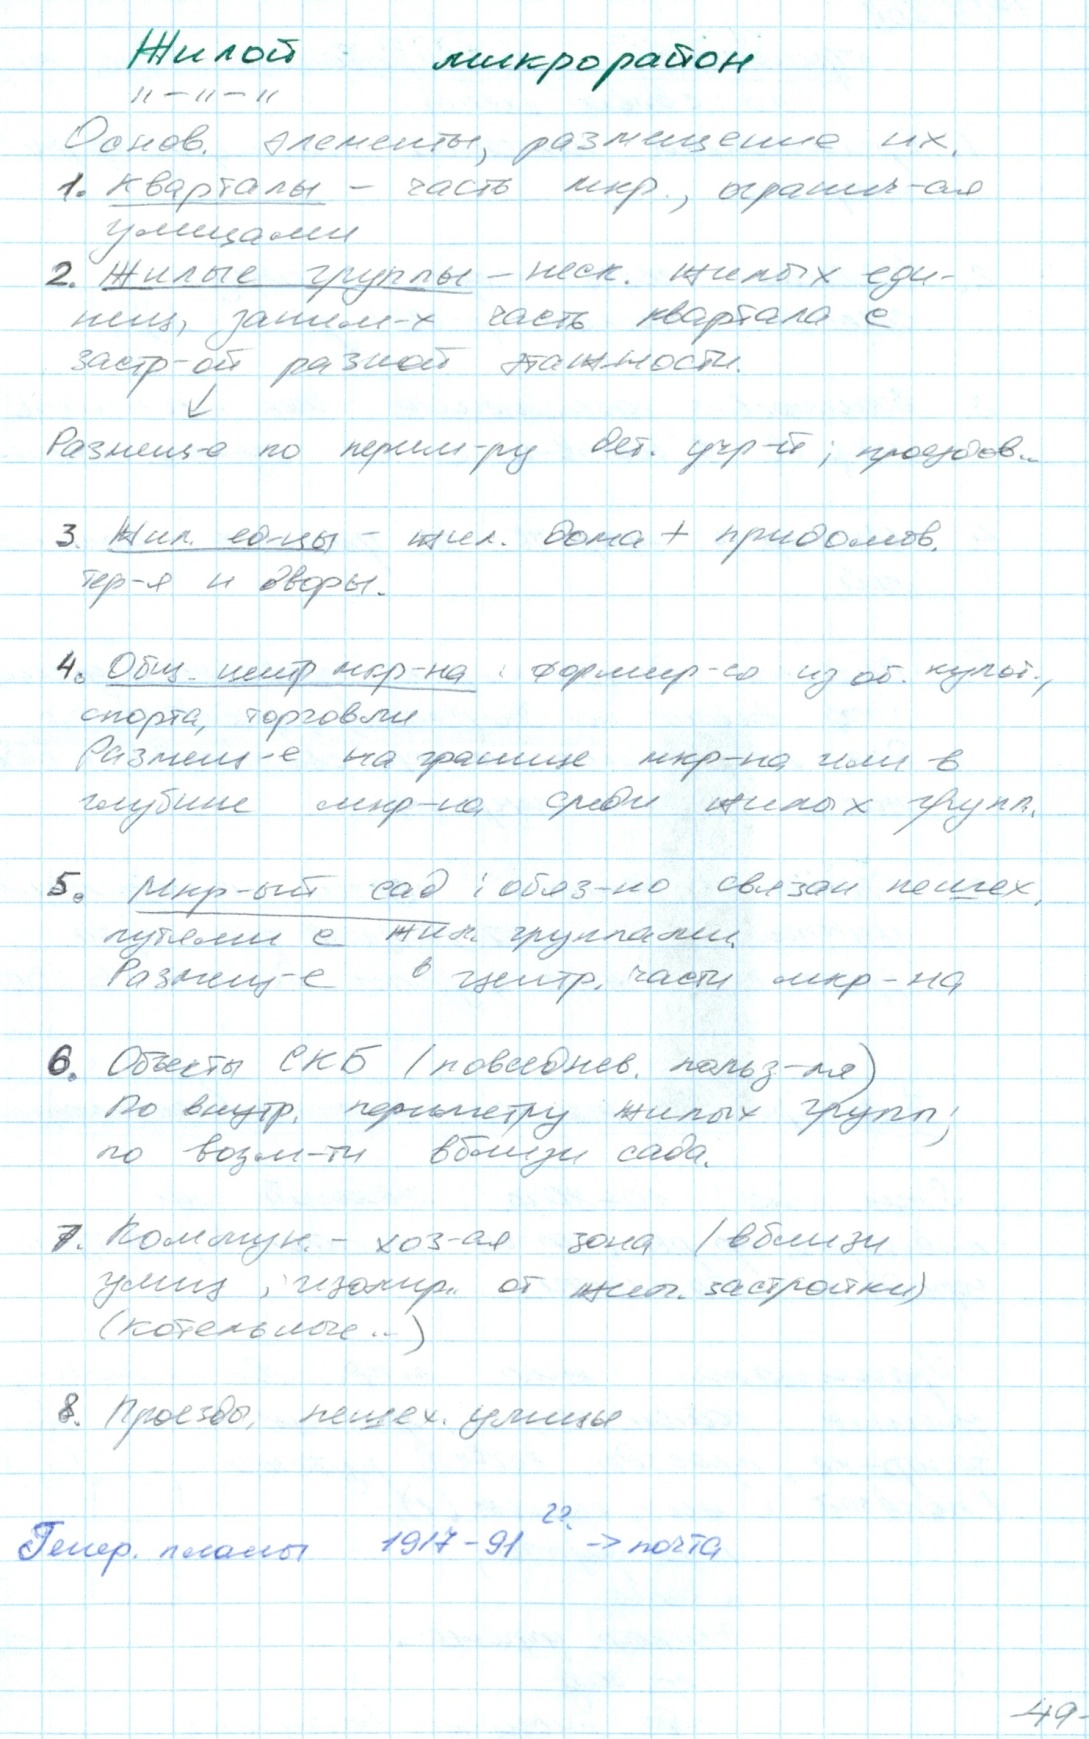 Жилой микрорайон
"–"–"
Основ. элементы, размещение их.
1. Кварталы – часть мкр., огранич-ая
улицами
2. Жилые группы – неск. жилых еди-
ниц, заним-х часть квартала с
застр-ой разной этажности.
↓
Размещ-е по перим-ру дет. учр-й; проездов..
3. Жил. ед-цы – жил. дома + придомов.
тер-я и дворы.
4. Общ. центр мкр-на : формир-ся из об. культ.,
спорта, торговли
Размещ-е на границе мкр-на или в
глубине мкр-на среди жилых групп.
5. Мкр-ый сад : обяз-но связан пешех.
путями с жил. группами.
Размещ-е в центр. части мкр-на
6. Объекты СКБ (повседнев. польз-ия)
По внутр. периметру жилых групп;
по возм-ти вблизи сада.
7. Коммун. – хоз-ая зона (вблизи
улиц, изолир. от жил. застройки)
(котельные ..)
8. Проезды, пешех. улицы
Генер. планы 1917–91 гг. → почта
-49-